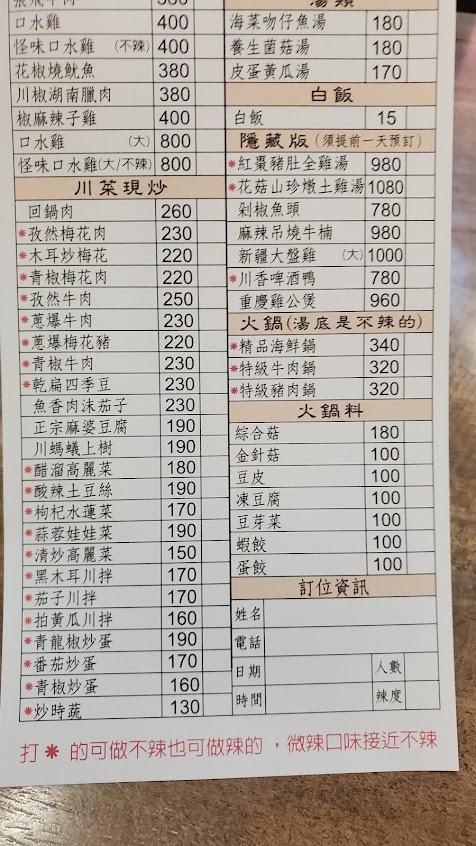 口水雞 400
怪味口水雞 (不辣) 400
花椒燒魷魚 380
川椒湖南臘肉 380
椒麻辣子雞 400
口水雞 (大) 800
怪味口水雞(大/不辣) 800
川菜現炒
回鍋肉 260
*孜然梅花肉 230
*木耳炒梅花 220
*青椒梅花肉 220
*孜然牛肉 250
*蔥爆牛肉 230
*蔥爆梅花豬 220
*青椒牛肉 230
*乾扁四季豆 230
魚香肉沫茄子 230
正宗麻婆豆腐 190
川螞蟻上樹 190
*醋溜高麗菜 180
*酸辣土豆絲 190
*枸杞水蓮菜 170
*蒜蓉娃娃菜 190
*清炒高麗菜 150
*黑木耳川拌 170
*茄子川拌 170
*拍黃瓜川拌 160
*青龍椒炒蛋 190
*番茄炒蛋 170
*青椒炒蛋 160
*炒時蔬 130
海菜吻仔魚湯 180
養生菌菇湯 180
皮蛋黃瓜湯 170
白飯
白飯 15
隱藏版(須提前一天預訂)
*紅棗豬肚全雞湯 980
*花菇山珍燉土雞湯 1080
剁椒魚頭 780
麻辣吊燒牛楠 980
新疆大盤雞 (大) 1000
*川香啤酒鴨 780
重慶雞公煲 960
火鍋(湯底是不辣的)
*精品海鮮鍋 340
*特級牛肉鍋 320
*特級豬肉鍋 320
火鍋料
綜合菇 180
金針菇 100
豆皮 100
凍豆腐 100
豆芽菜 100
蝦餃 100
蛋餃 100
訂位資訊
姓名
電話
日期 人數
時間 辣度
打 * 的可做不辣也可做辣的，微辣口味接近不辣